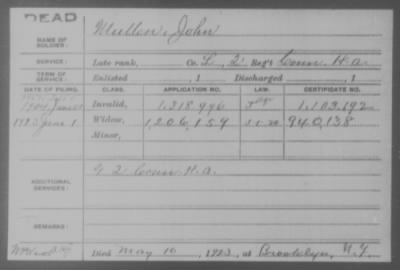 DEAD
NAME OF SOLDIER: Mullen, John
SERVICE: Late rank, Co. L, 2 Reg't Conn. H.A.
TERM OF SERVICE: Enlisted , 1 Discharged , 1
DATE OF FILING. CLASS. APPLICATION NO. LAW. CERTIFICATE NO.
1904 June Invalid, 1,318,996 1,103,192
1923 June 1 Widow, 1,206,159 940,138
Minor,
ADDITIONAL SERVICES: G 2 Conn. H.A.
REMARKS:
Died May 10, 1923, at Brooklyn, N.Y.